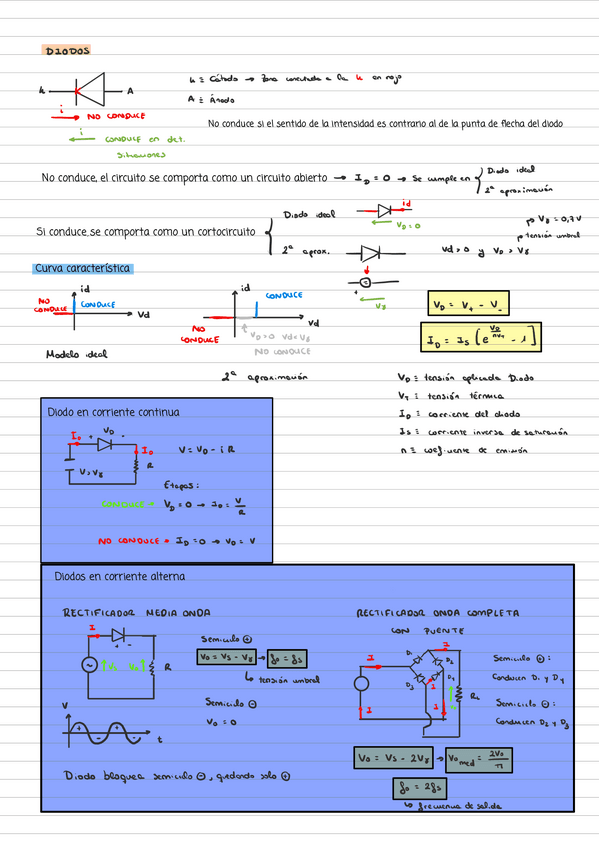 DIODOS
k ≡ Cátodo → Zona conectada a la k en rojo
k A
A ≡ Ánodo
i → NO CONDUCE
No conduce si el sentido de la intensidad es contrario al de la punta de flecha del diodo
i ← CONDUCE en det.
situaciones
No conduce, el circuito se comporta como un circuito abierto → I_D = 0 → Se cumple en { Diodo ideal
2ª aproximación
Si conduce, se comporta como un cortocircuito {
Diodo ideal id V_D = 0
Vγ = 0,7V
tensión umbral
2ª aprox. Vd > 0 y V_D > Vγ
+ -
Vγ
Curva característica
id
NO CONDUCE CONDUCE
Vd
Modelo ideal
id
CONDUCE
Vd
NO CONDUCE
V_D > 0 Vd < Vγ
NO CONDUCE
2ª aproximación
V_D = V_+ - V_-
I_D = I_S [e^(V_D/nV_T) - 1]
V_D ≡ tensión aplicada Diodo
V_T ≡ tensión térmica
I_D ≡ corriente del diodo
Is ≡ corriente inversa de saturación
n ≡ coeficiente de emisión
Diodo en corriente continua
I_D + V_D -
I_D
R
V > Vγ
V = V_D - i R
Etapas:
CONDUCE → V_D = 0 → I_D = V/R
NO CONDUCE → I_D = 0 → V_D = V
Diodos en corriente alterna
RECTIFICADOR MEDIA ONDA
I + -
R
Semiciclo ⊕
V_0 = V_S - Vγ → f_0 = f_S
↳ tensión umbral
Semiciclo ⊖
V_0 = 0
V
+ - + -
t
Diodo bloquea semiciclo ⊖, quedando solo ⊕
RECTIFICADOR ONDA COMPLETA
CON PUENTE
I D1 D2 D3 D4 I I I R_L
Semiciclo ⊕:
Conducen D1 y D4
Semiciclo ⊖:
Conducen D2 y D3
V_0 = V_S - 2Vγ → V_0 med = 2V_0/π
f_0 = 2f_S
↳ frecuencia de salida